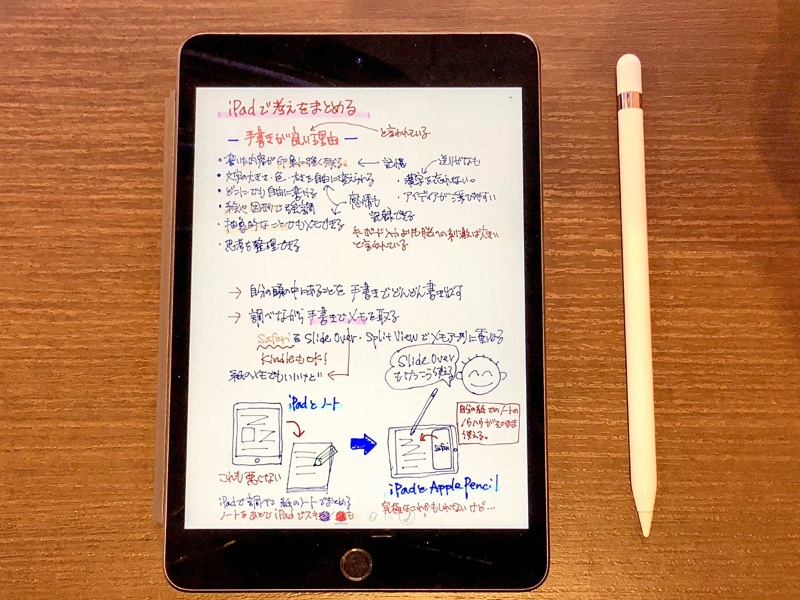 iPadで考えをまとめる
ー 手書きが良い理由 ー
と言われている
・書いた内容が印象に強く残る。 ← 記憶
・文字の大きさ・色・太さを自由に変えられる
・どこにでも自由に書ける
・絵や図形で強調
・抽象的なことでもメモできる
・思考を整理できる
感情も
記録できる
送りがなも
・漢字を忘れない。
・アイディアが浮びやすい
キーボード入力よりも脳への刺激は大きい
と言われている
→ 自分の頭の中にあることを手書きでどんどん書き出す
→ 調べながら手書きでメモを取る
SafariをSlide Over・Split Viewでメモアプリに重ねる
Kindleもok!
紙のメモでもいいけど
Slide Over
もけっこう使える
iPadとノート
これも悪くない
iPadで調べて紙のノートでまとめる
ノートをあとでiPadでスキ
も
Safari
自分の紙でのノートの
ノウハウがそのまま
使える。
iPadとApple Pencil
究極はこれかもしれないけど…